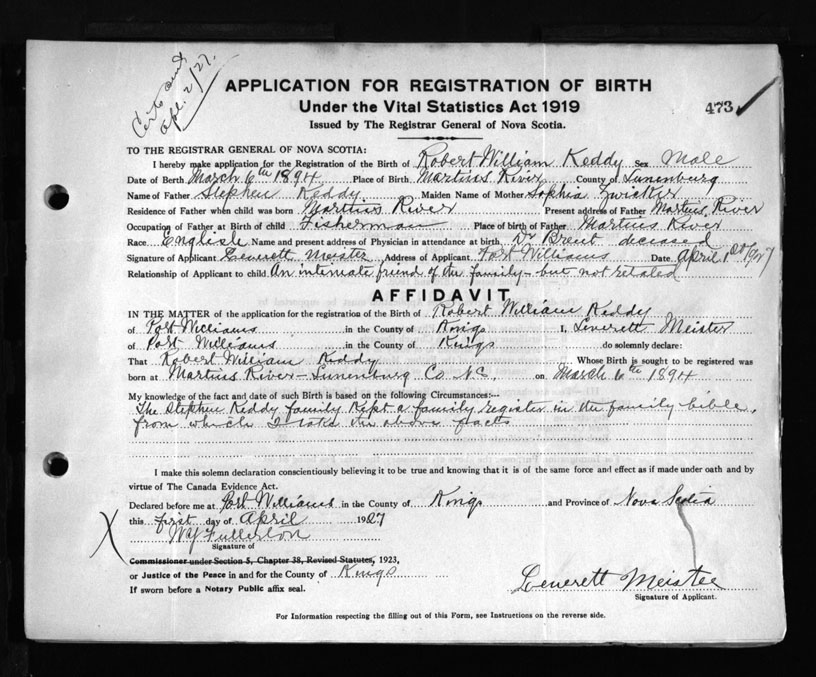 Certs sent
Apl. 2/27.
APPLICATION FOR REGISTRATION OF BIRTH
Under the Vital Statistics Act 1919
473
Issued by The Registrar General of Nova Scotia.
TO THE REGISTRAR GENERAL OF NOVA SCOTIA:
I hereby make application for the Registration of the Birth of Robert William Keddy Sex Male
Date of Birth March 6th 1894 Place of Birth Martins River County of Lunenburg
Name of Father Stephen Keddy Maiden Name of Mother Sophia Zwicker
Residence of Father when child was born Martins River Present address of Father Martins River
Occupation of Father at Birth of child Fisherman Place of birth of Father Martins River
Race English Name and present address of Physician in attendance at birth Dr Brent deceased
Signature of Applicant Leverett Meister Address of Applicant Port Williams Date April 1st 1927
Relationship of Applicant to child An intimate friend of the family - but not related
AFFIDAVIT
IN THE MATTER of the application for the registration of the Birth of Robert William Keddy
of Port Williams in the County of Kings I, Leverett Meister
of Port Williams in the County of Kings do solemnly declare:
That Robert William Keddy Whose Birth is sought to be registered was
born at Martins River - Lunenburg Co N.S. on March 6th 1894
My knowledge of the fact and date of such Birth is based on the following Circumstances:—
The Stephen Keddy family kept a family register in the family bible,
from which I take the above facts
I make this solemn declaration conscientiously believing it to be true and knowing that it is of the same force and effect as if made under oath and by
virtue of The Canada Evidence Act.
Declared before me at Port Williams in the County of Kings and Province of Nova Scotia
this first day of April 1927
X W Y Fullerton
Signature of
Commissioner under Section 5, Chapter 38, Revised Statutes, 1923,
or Justice of the Peace in and for the County of Kings
If sworn before a Notary Public affix seal.
Leverett Meister
Signature of Applicant.
For Information respecting the filling out of this Form, see Instructions on the reverse side.